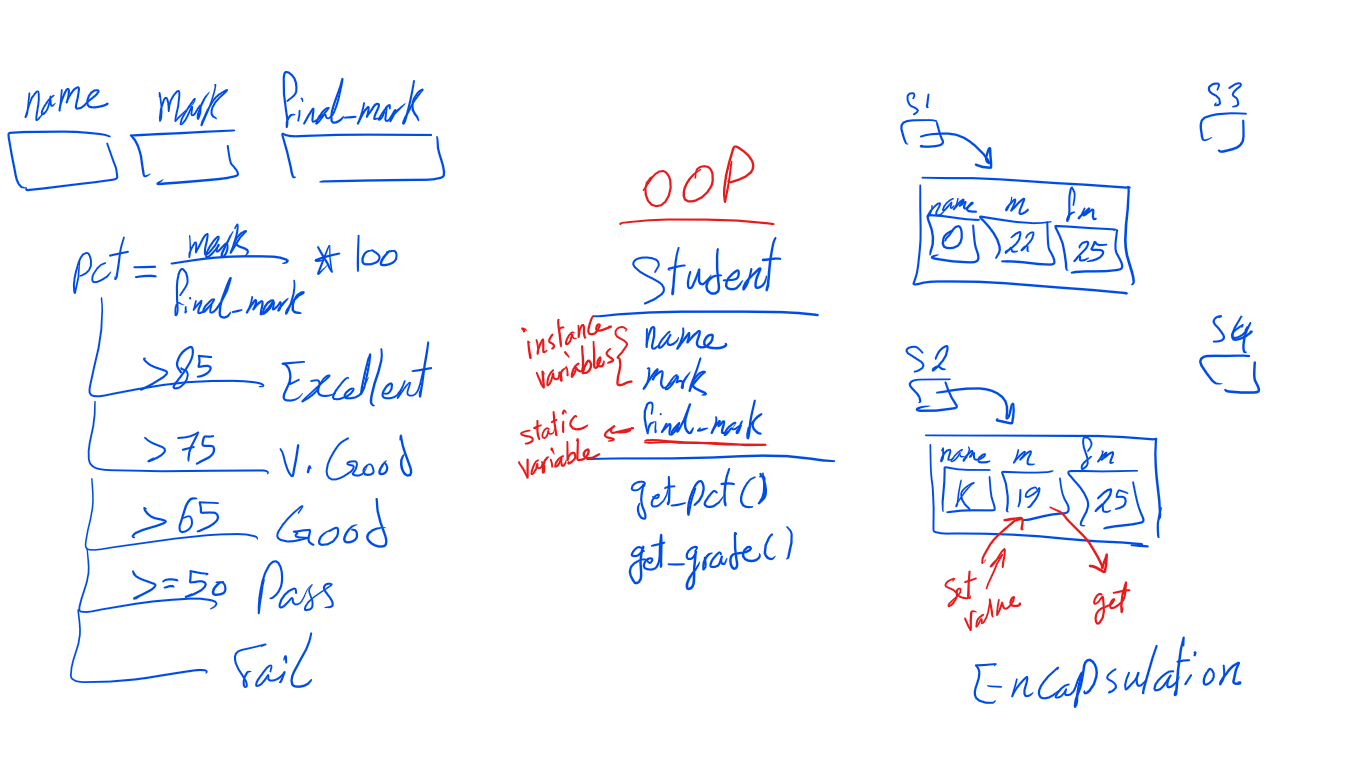 name mark final_mark
pct = mark / final_mark * 100
>85 Excellent
>75 V. Good
>65 Good
>=50 Pass
Fail
OOP
Student
instance variables
name
mark
static variable
final_mark
get_pct()
get_grade()
S1
name m fm
O 22 25
S2
name m fm
K 19 25
set value
get
S3
S4
Encapsulation